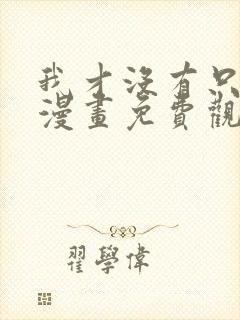 我才没有只
漫畫免費觀
翟學偉